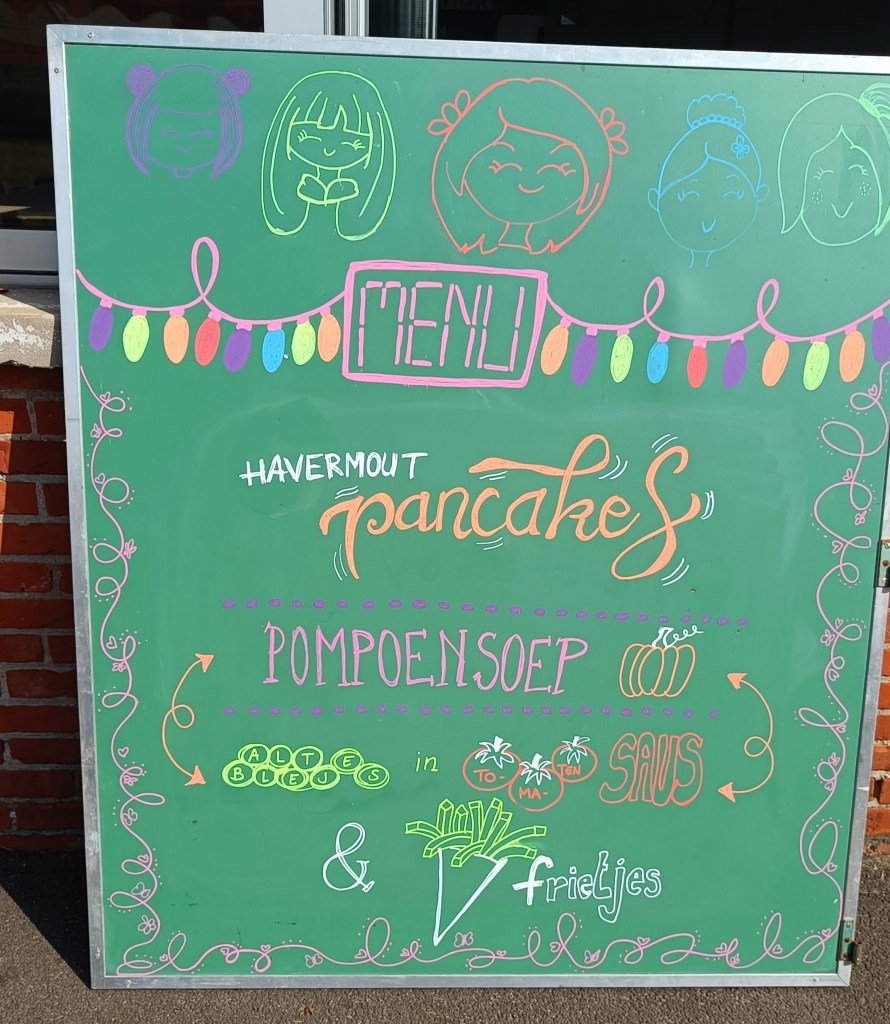 MENU
HAVERMOUT
pancakes
POMPOENSOEP
BALLETJES in TO-MA-TEN SAUS
& frietjes